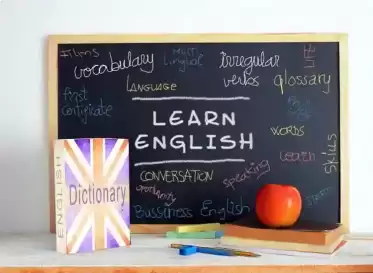 Idioms
vocabulary
Multi
lingual
irregular
verbs
LIFE
LANGUAGE
glossary
first
certificate
LEARN
ENGLISH
WORDS
learn
skills
CONVERSATION
speaking
Bussiness English
ENGLISH
Dictionary